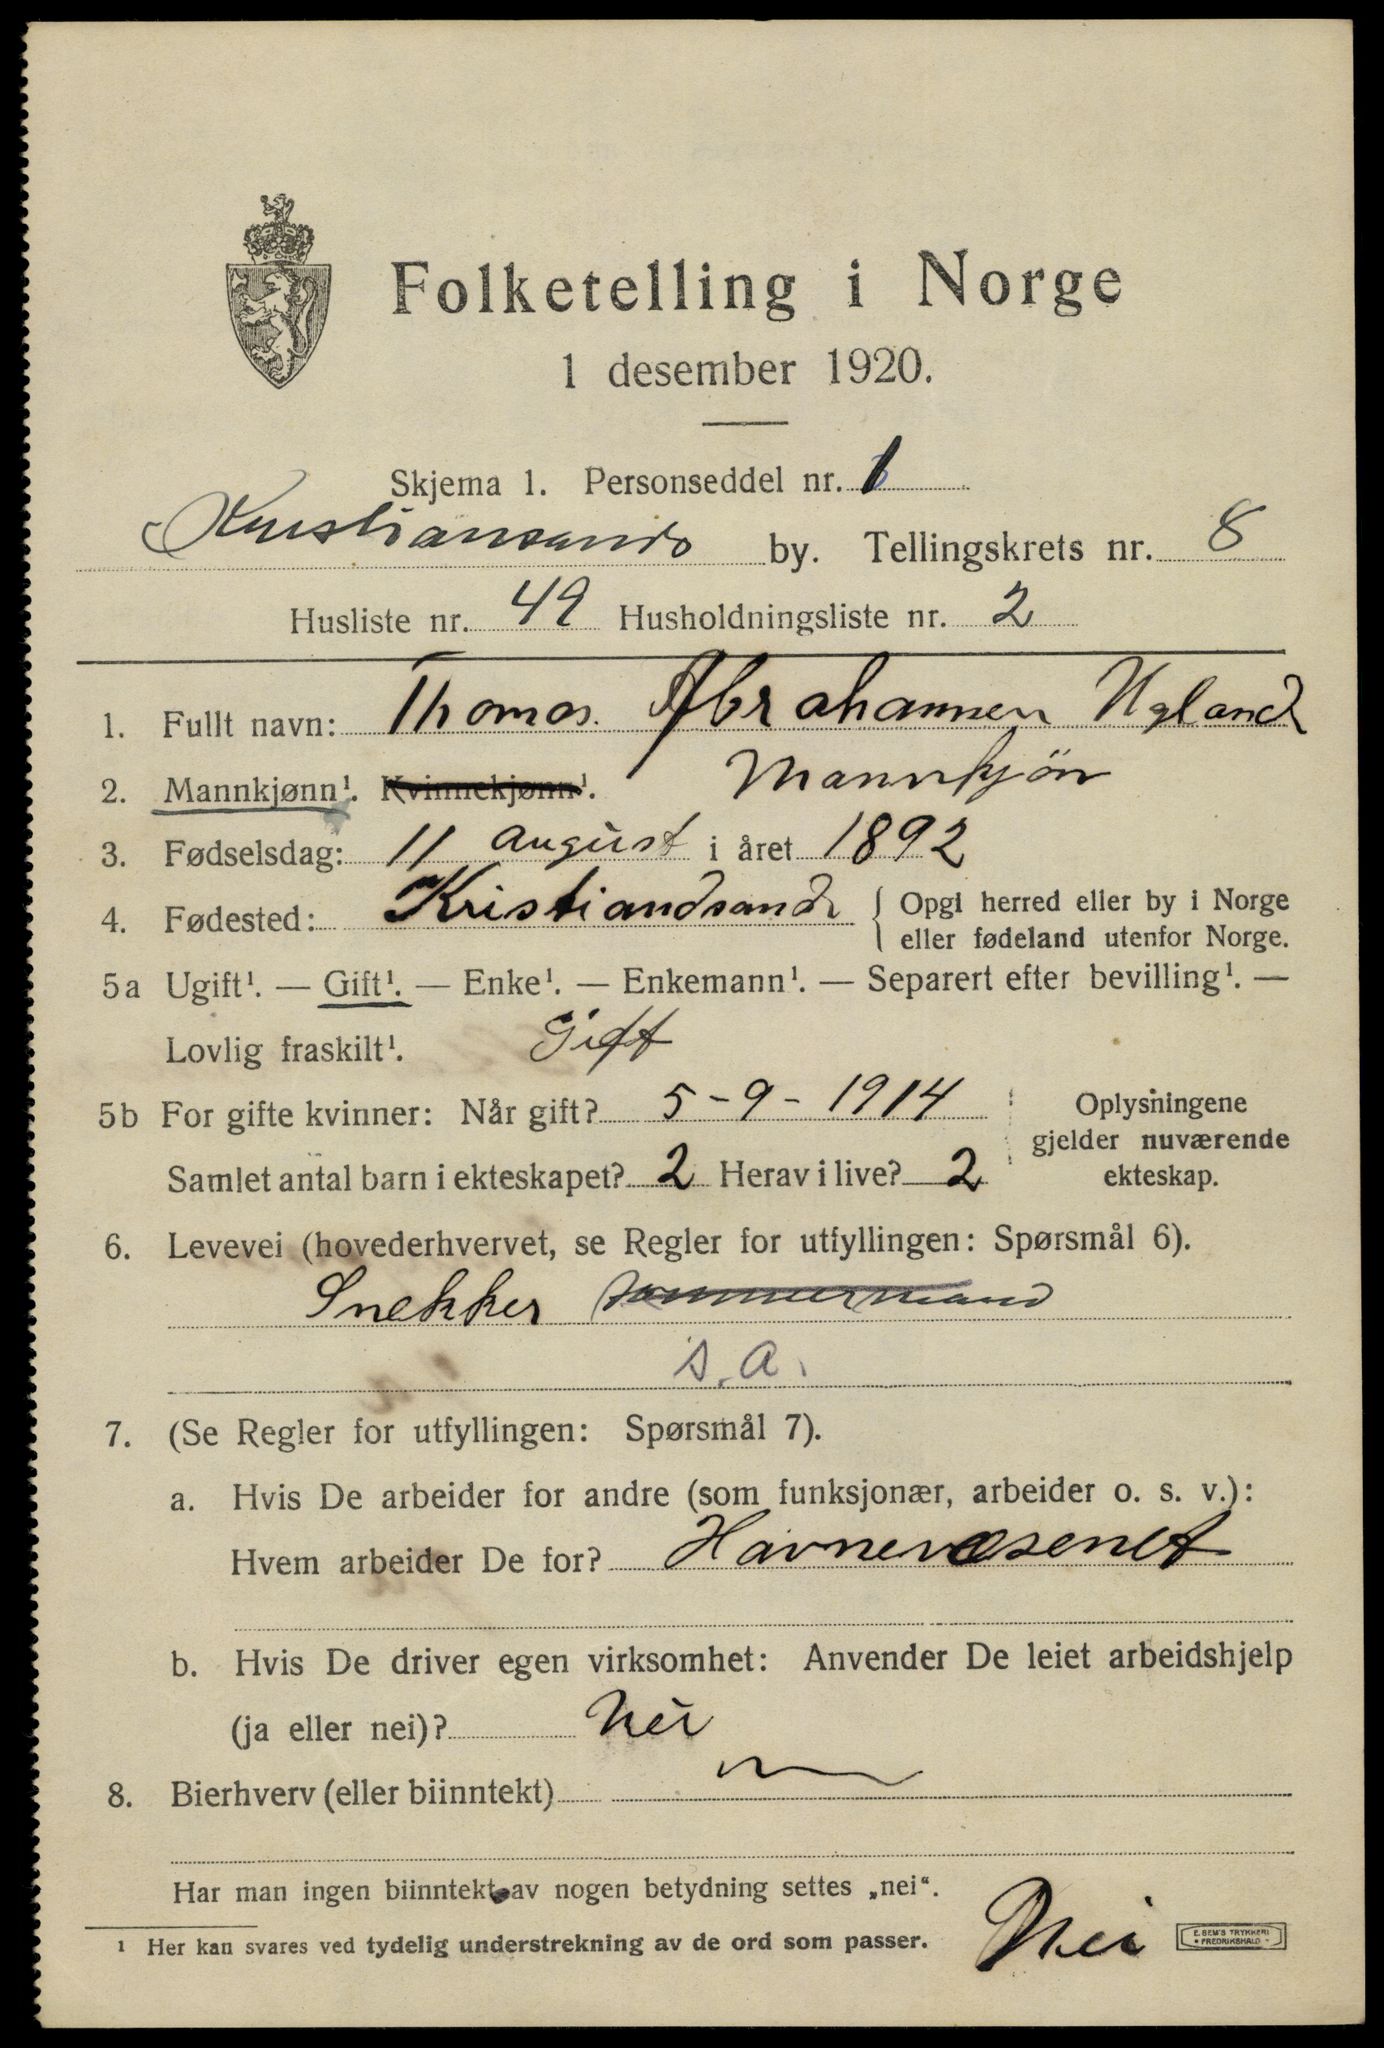 Folketelling i Norge
1 desember 1920.
Skjema 1. Personseddel nr. 1
Kristiansands by. Tellingskrets nr. 8
Husliste nr. 49 Husholdningsliste nr. 2
1. Fullt navn: Thomas Abrahamsen Ugland
2. Mannkjønn¹. Kvinnekjønn¹. Mannkjön
3. Fødselsdag: 11 august i året 1892
4. Fødested: Kristiandsand { Opgi herred eller by i Norge
eller fødeland utenfor Norge.
5a Ugift¹. — Gift¹. — Enke¹. — Enkemann¹. — Separert efter bevilling¹. —
Lovlig fraskilt¹. Gift
5b For gifte kvinner: Når gift? 5-9-1914 Oplysningene
gjelder nuværende
Samlet antal barn i ekteskapet? 2 Herav i live? 2 ekteskap.
6. Levevei (hovederhvervet, se Regler for utfyllingen: Spørsmål 6).
Snekker tømmermand
s.a.
7. (Se Regler for utfyllingen: Spørsmål 7).
a. Hvis De arbeider for andre (som funksjonær, arbeider o. s. v.):
Hvem arbeider De for? Havnevæsenet
b. Hvis De driver egen virksomhet: Anvender De leiet arbeidshjelp
(ja eller nei)? Nei
8. Bierhverv (eller biinntekt)
Har man ingen biinntekt av nogen betydning settes „nei“.
Nei
¹ Her kan svares ved tydelig understrekning av de ord som passer.
E. SEM'S TRYKKERI
FREDRIKSHALD